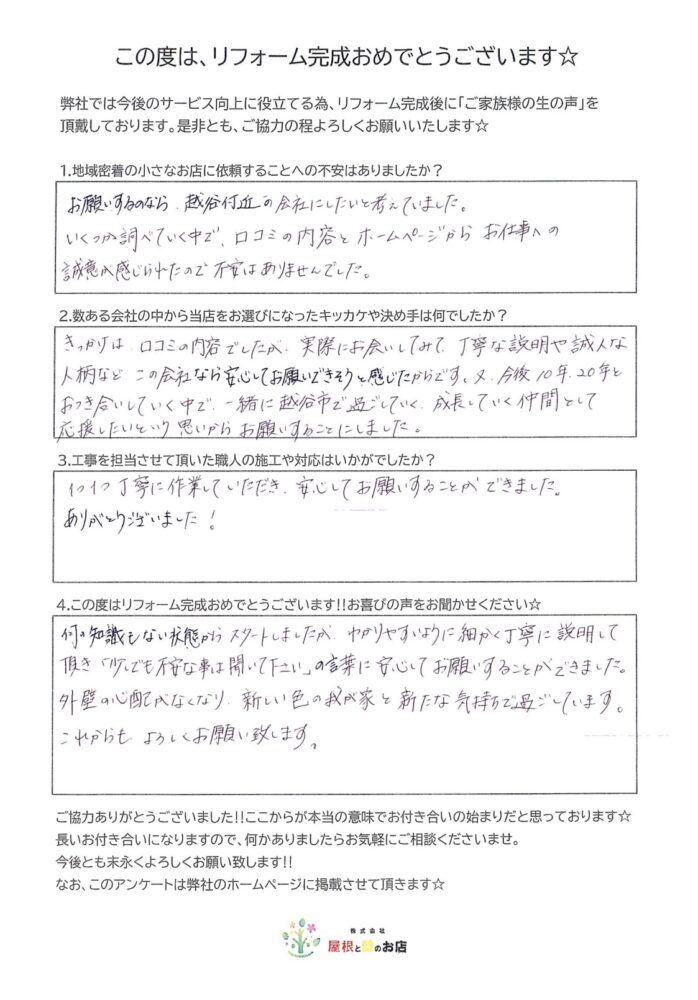 この度は、リフォーム完成おめでとうございます☆
弊社では今後のサービス向上に役立てる為、リフォーム完成後に「ご家族様の生の声」を
頂戴しております。是非とも、ご協力の程よろしくお願いいたします☆
1.地域密着の小さなお店に依頼することへの不安はありましたか？
お願いするのなら、越谷付近の会社にしたいと考えていました。
いくつか調べていく中で、口コミの内容とホームページからお仕事への
誠意が感じられたので不安はありませんでした。
2.数ある会社の中から当店をお選びになったキッカケや決め手は何でしたか？
きっかけは、口コミの内容でしたが、実際にお会いしてみて、丁寧な説明や誠人な
人柄など、この会社なら安心してお願いできそうと感じたからです。又、今後10年、20年と
おつき合いしていく中で、一緒に越谷市で過ごしていく、成長していく仲間として
応援したいという思いからお願いすることにしました。
3.工事を担当させて頂いた職人の施工や対応はいかがでしたか？
1つ1つ丁寧に作業していただき、安心してお願いすることができました。
ありがとうございました！
4.この度はリフォーム完成おめでとうございます!!お喜びの声をお聞かせください☆
何の知識もない状態からスタートしましたが、わかりやすいように細かく丁寧に説明して
頂き「少しでも不安な事は聞いて下さい」の言葉に安心してお願いすることができました。
外壁の心配がなくなり、新しい色の我が家と新たな気持ちで過ごしています。
これからも、よろしくお願い致します。
ご協力ありがとうございました!!ここからが本当の意味でお付き合いの始まりだと思っております☆
長いお付き合いになりますので、何かありましたらお気軽にご相談くださいませ。
今後とも末永くよろしくお願い致します!!
なお、このアンケートは弊社のホームページに掲載させて頂きます☆
株式会社
屋根と壁のお店